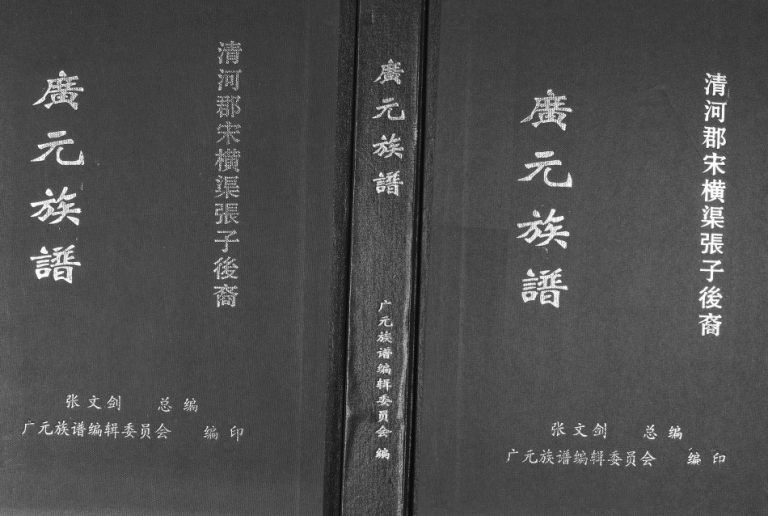 清河郡宋橫渠張子後裔
廣元族譜
张文剑 总编
广元族谱编辑委员会 编印
廣元族譜
广元族谱编辑委员会 编
清河郡宋橫渠張子後裔
廣元族譜
张文剑 总编
广元族谱编辑委员会 编印